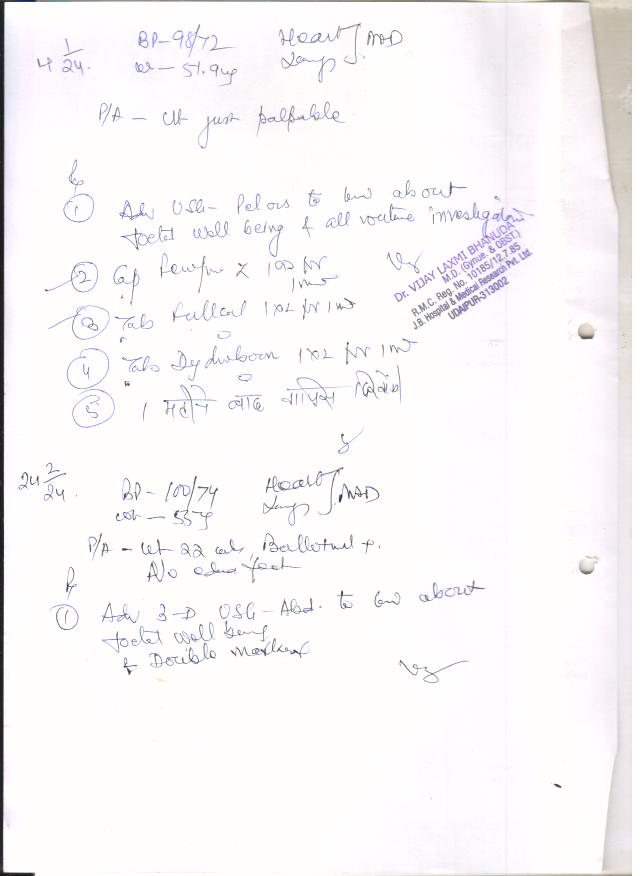 4 1/24. BP-98/72 Heart NAD
wt - 51.9kg Lungs
P/A - Ut just palpable
Rx
① Adv USG - Pelvis to know about
foetal well being & all routine investigation
② Cap 1x1 for
1 mt
③ Tab 1x2 for 1 mt
④ Tab Dydroboon 1x2 for 1 mt
⑤ 1 महीने बाद वापिस
Dr. VIJAY LAXMI BHANUDA
M.D. (Gynae. & OBST.)
R.M.C. Reg. No. 10185/12.7.85
J.B. Hospital & Medical Research Pvt. Ltd.
UDAIPUR-313002
24 2/24. BP - 100/74 Heart NAD
wt - 55kg Lungs
P/A - Ut 22 wks, Ballotment +.
No edema feet
Rx
① Adv 3-D USG - Abd. to know about
foetal well being
& Double Marker